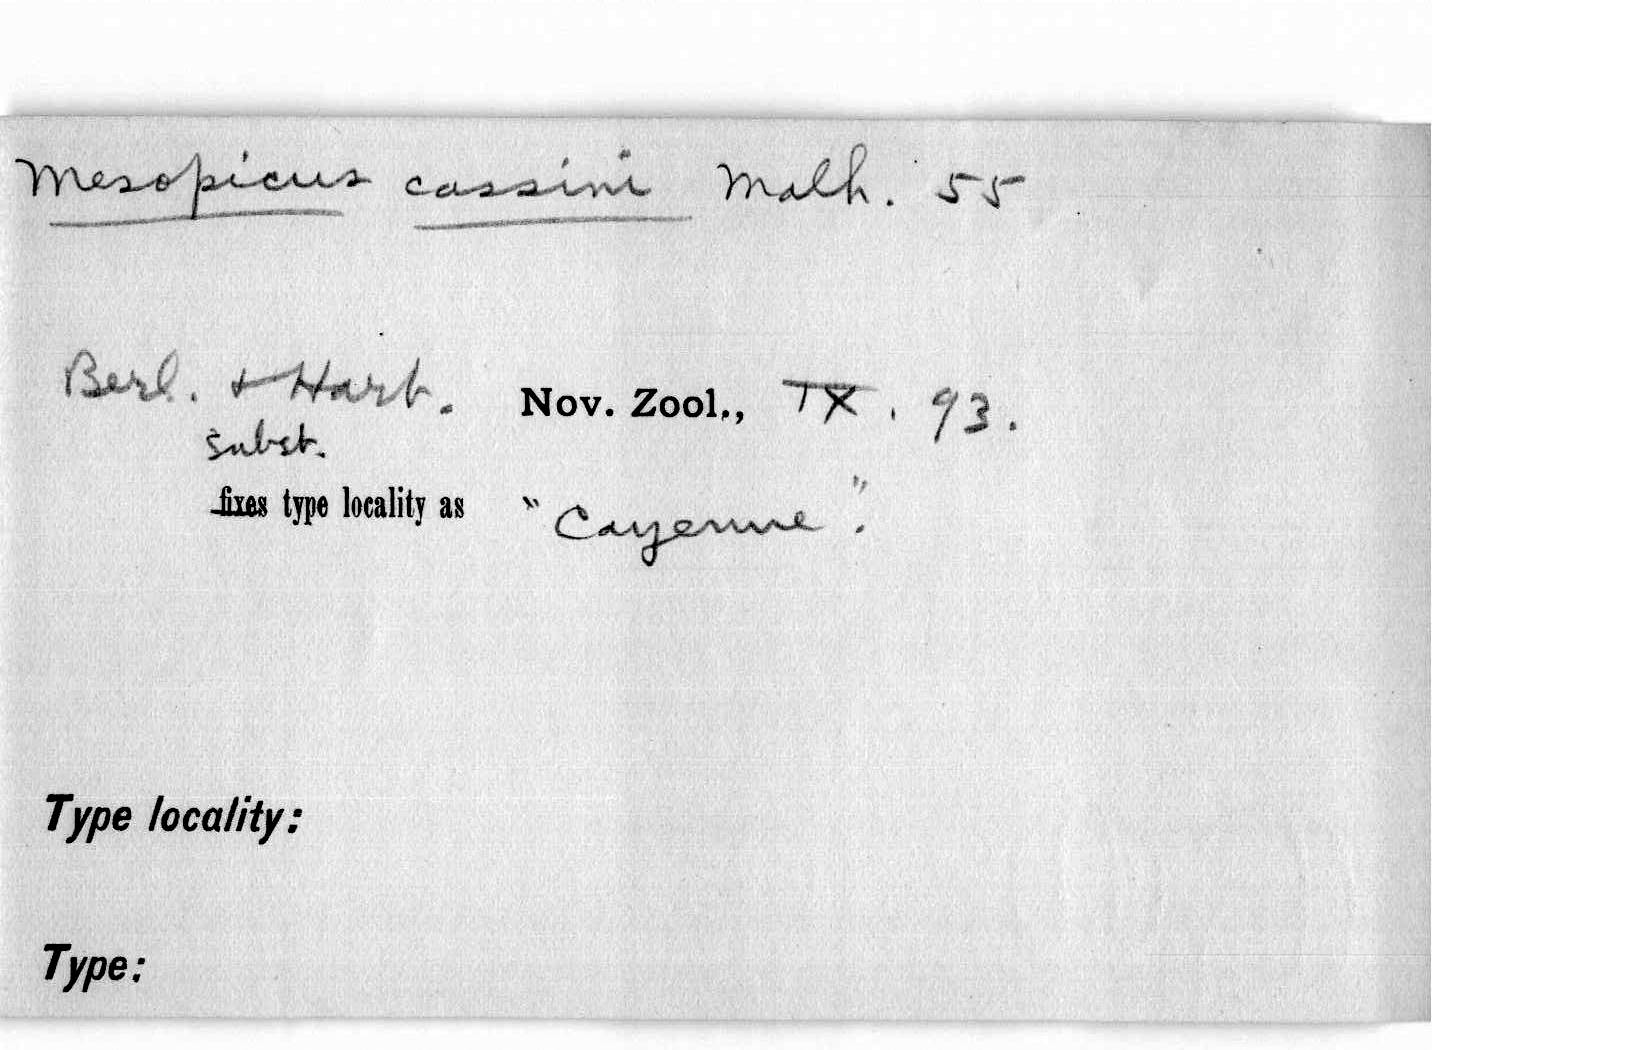 Mesopicus cassini Malh. 55
Berl. + Hart. Nov. Zool., IX. 93.
Subst.
fixes type locality as "Cayenne".
Type locality:
Type: